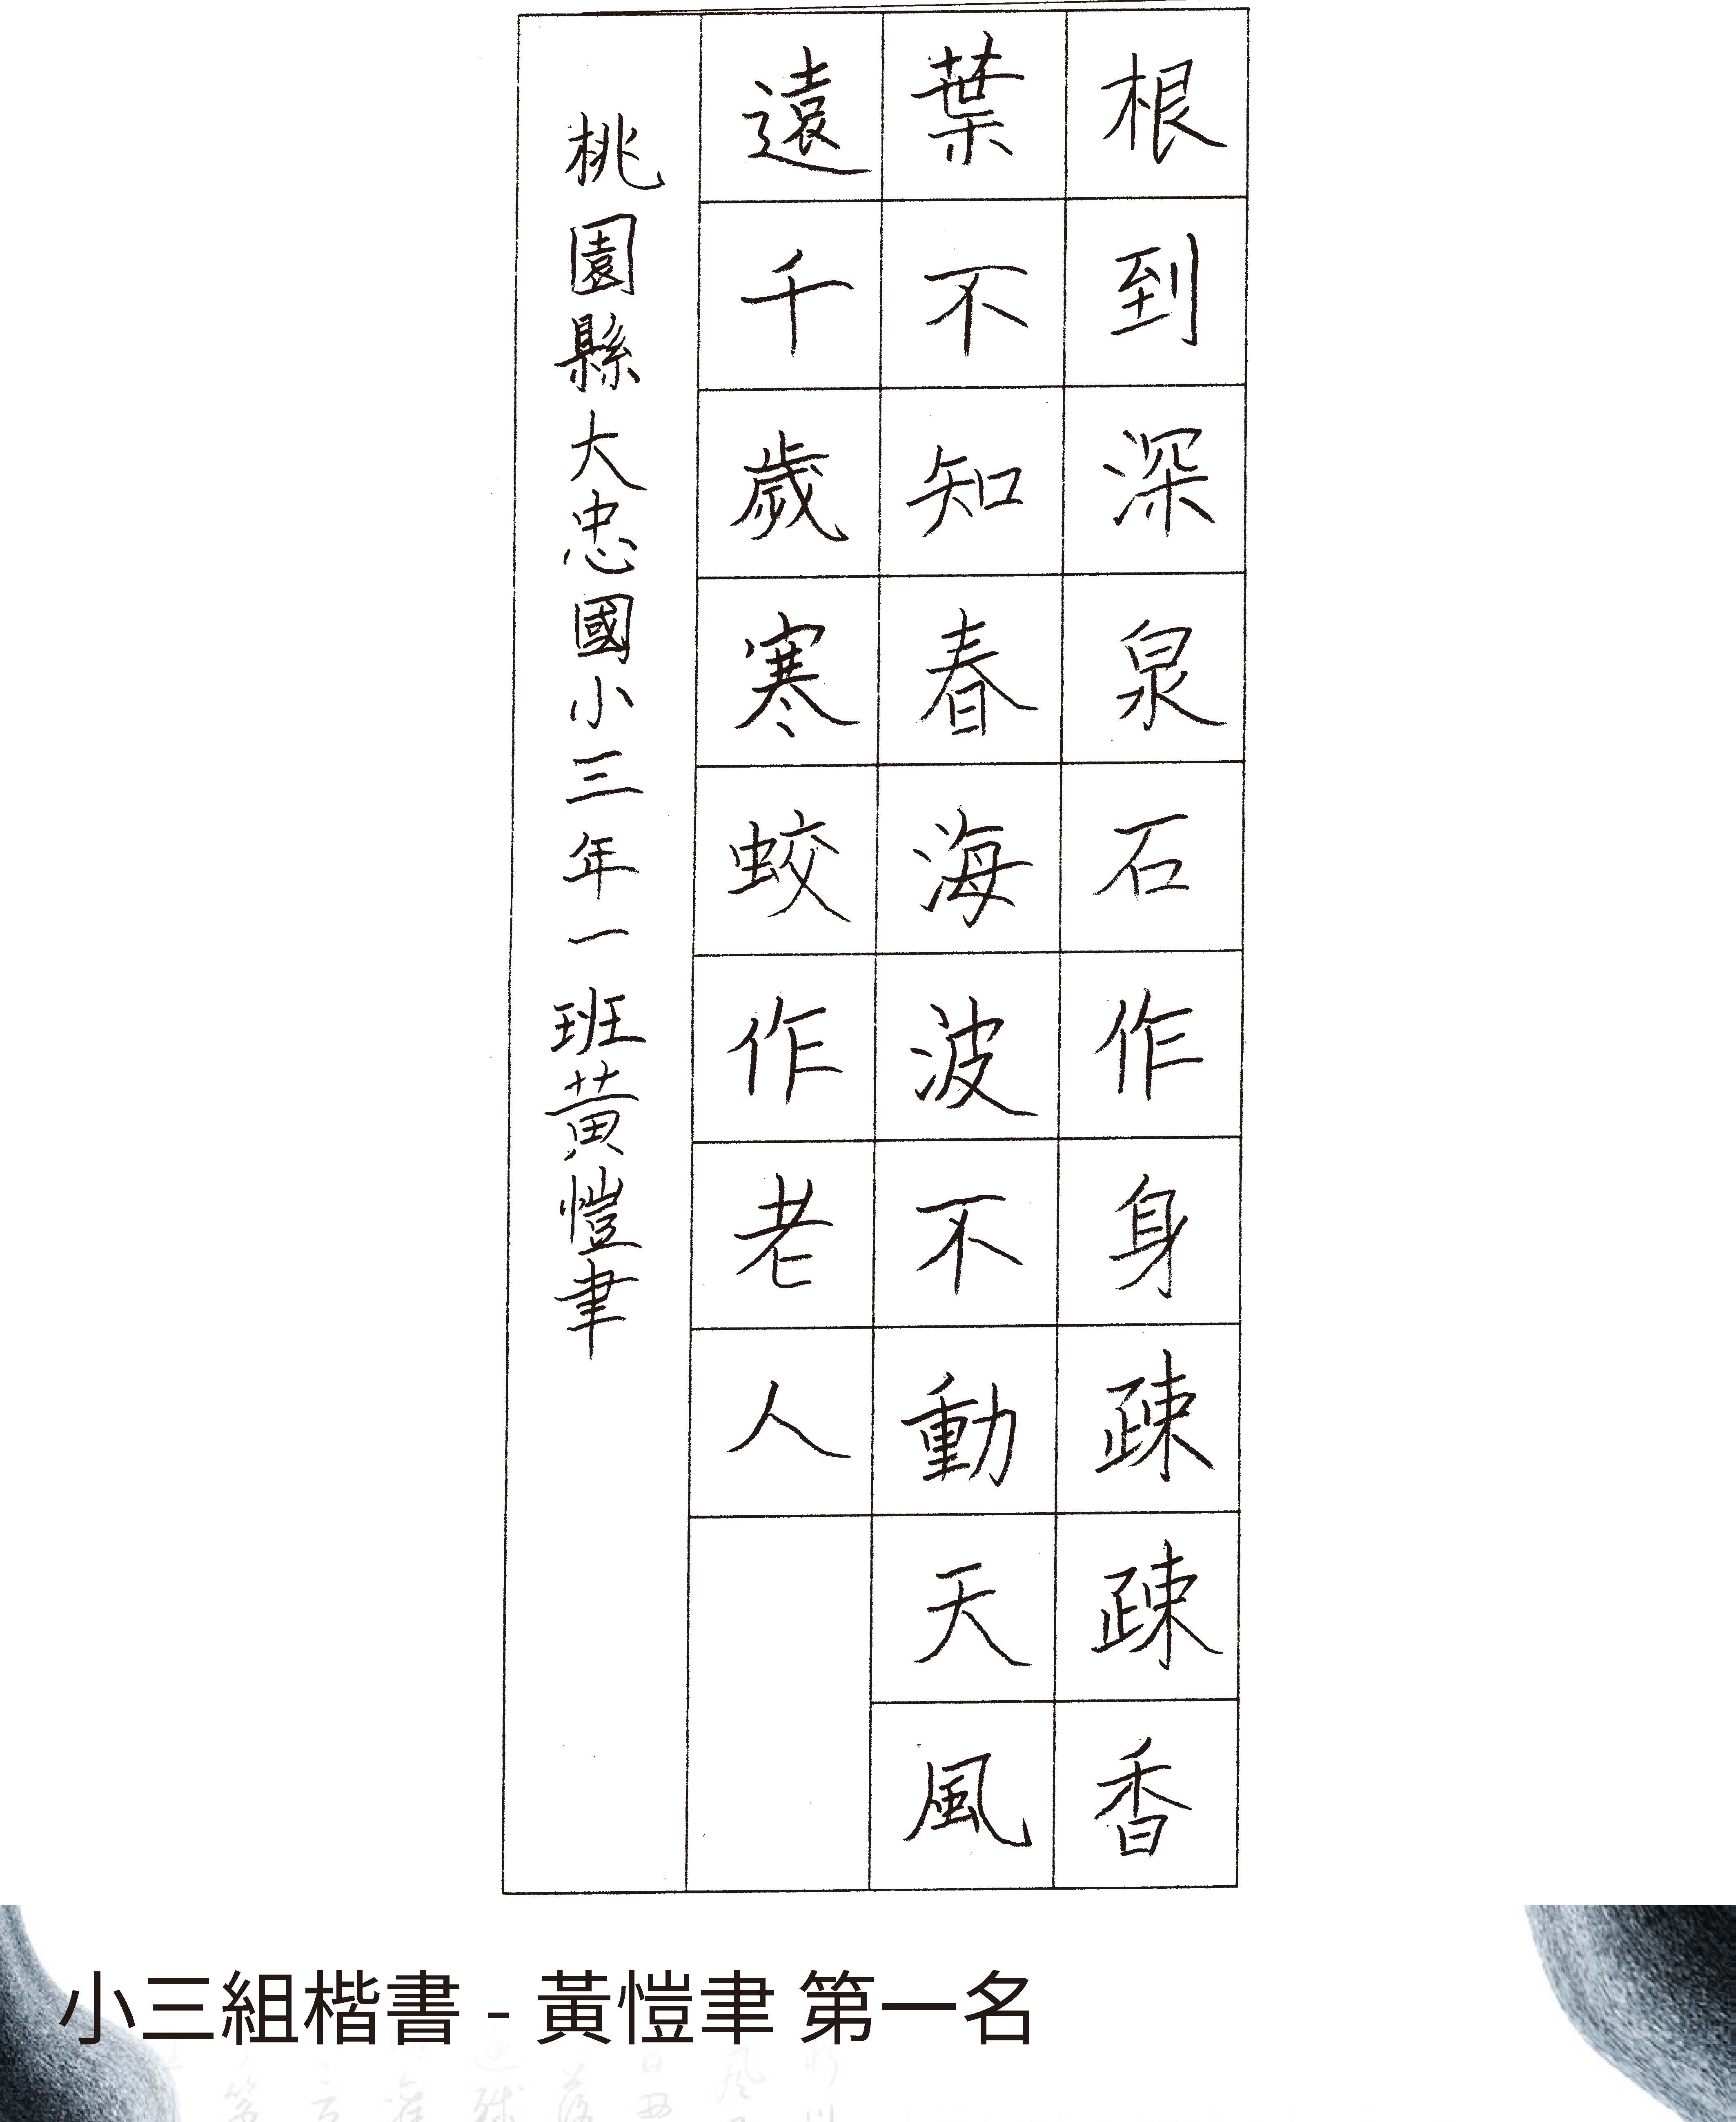 根到深泉石作身疎疎香
葉不知春海波不動天風
遠千歲寒蛟作老人
桃園縣大忠國小三年一班黃愷聿
小三組楷書 - 黃愷聿 第一名